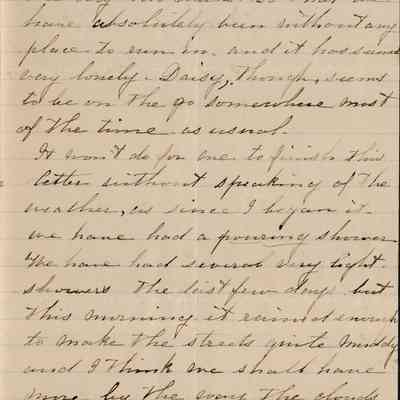 have absolutely been without any
place to run in. and it has seemed
very lonely. Daisy, though, seems
to be on the go somewhere most
of the time as usual.
It won't do for me to finish this
letter without speaking of the
weather, as since I began it.
we have had a pouring shower.
We have had several very light
showers the last few days but
this morning it rained enough
to make the streets quite muddy
and I think we shall have
more by the way the clouds